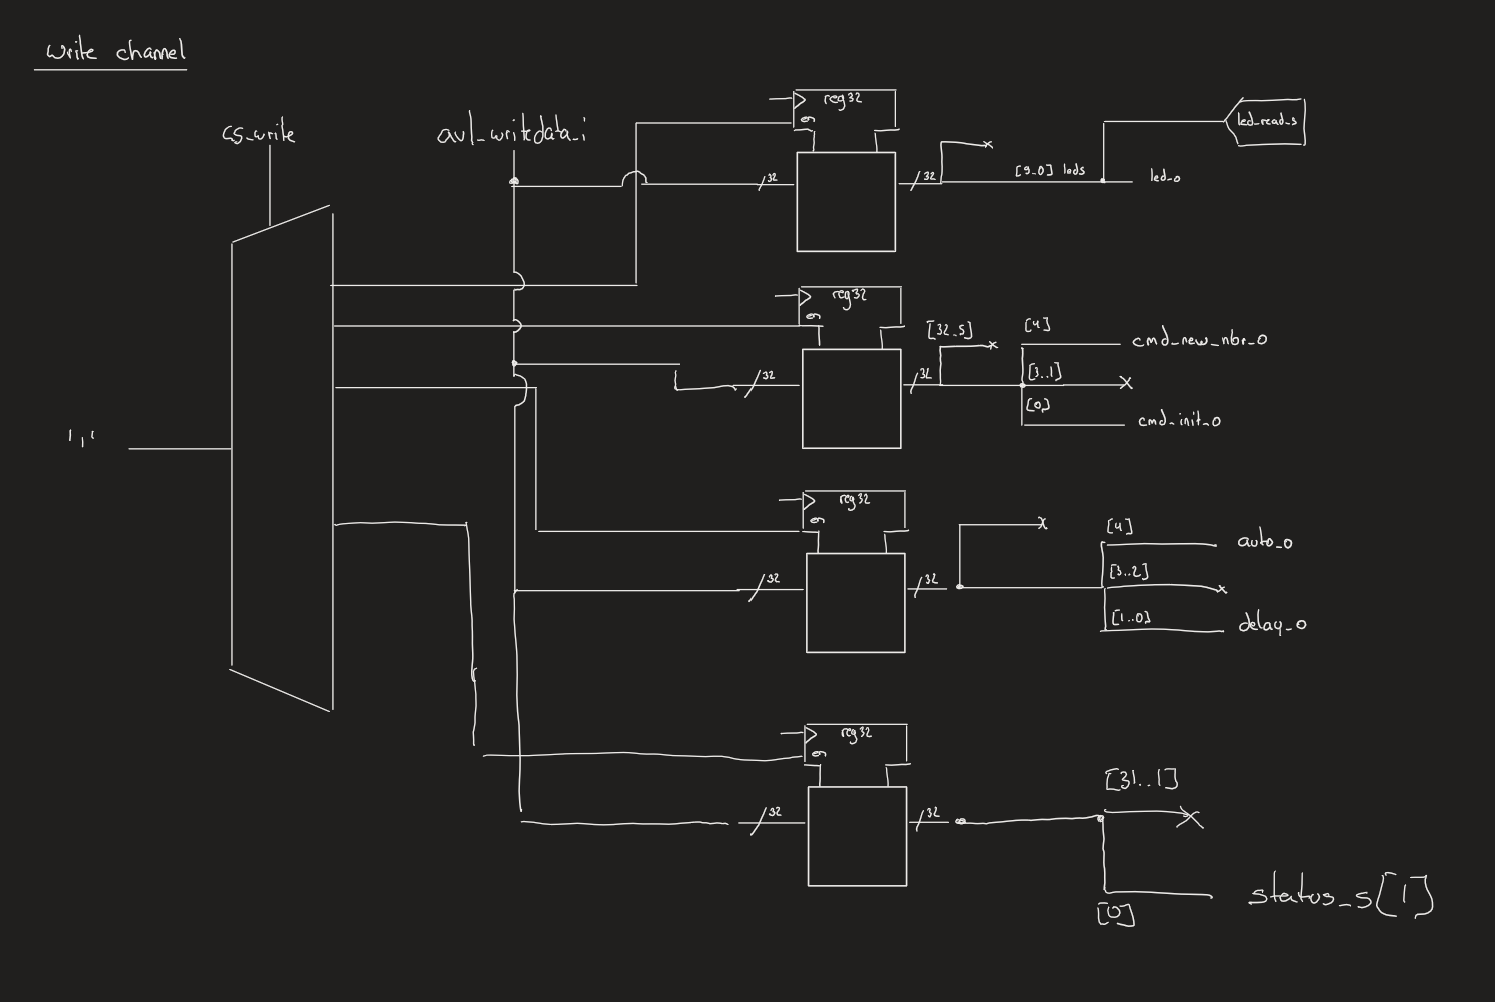 write channel
cs_write
avl_writedata_i
'1'
reg32
32
32
[9_0] leds
led_read_s
led_o
reg32
32
32
[32_5]
[4]
cmd_new_nbr_o
[3..1]
[0]
cmd_init_o
reg32
32
32
[4]
auto_o
[3..2]
[1..0]
delay_o
reg32
32
32
[31..1]
[0]
status_s[1]